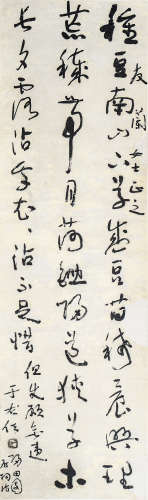 種豆南山下草盛豆苗稀晨興理
友蘭女士正之
荒穢帶月荷鋤歸道狹草木
長夕露沾我衣衣沾不足惜但使願無違
于右任
歸田園